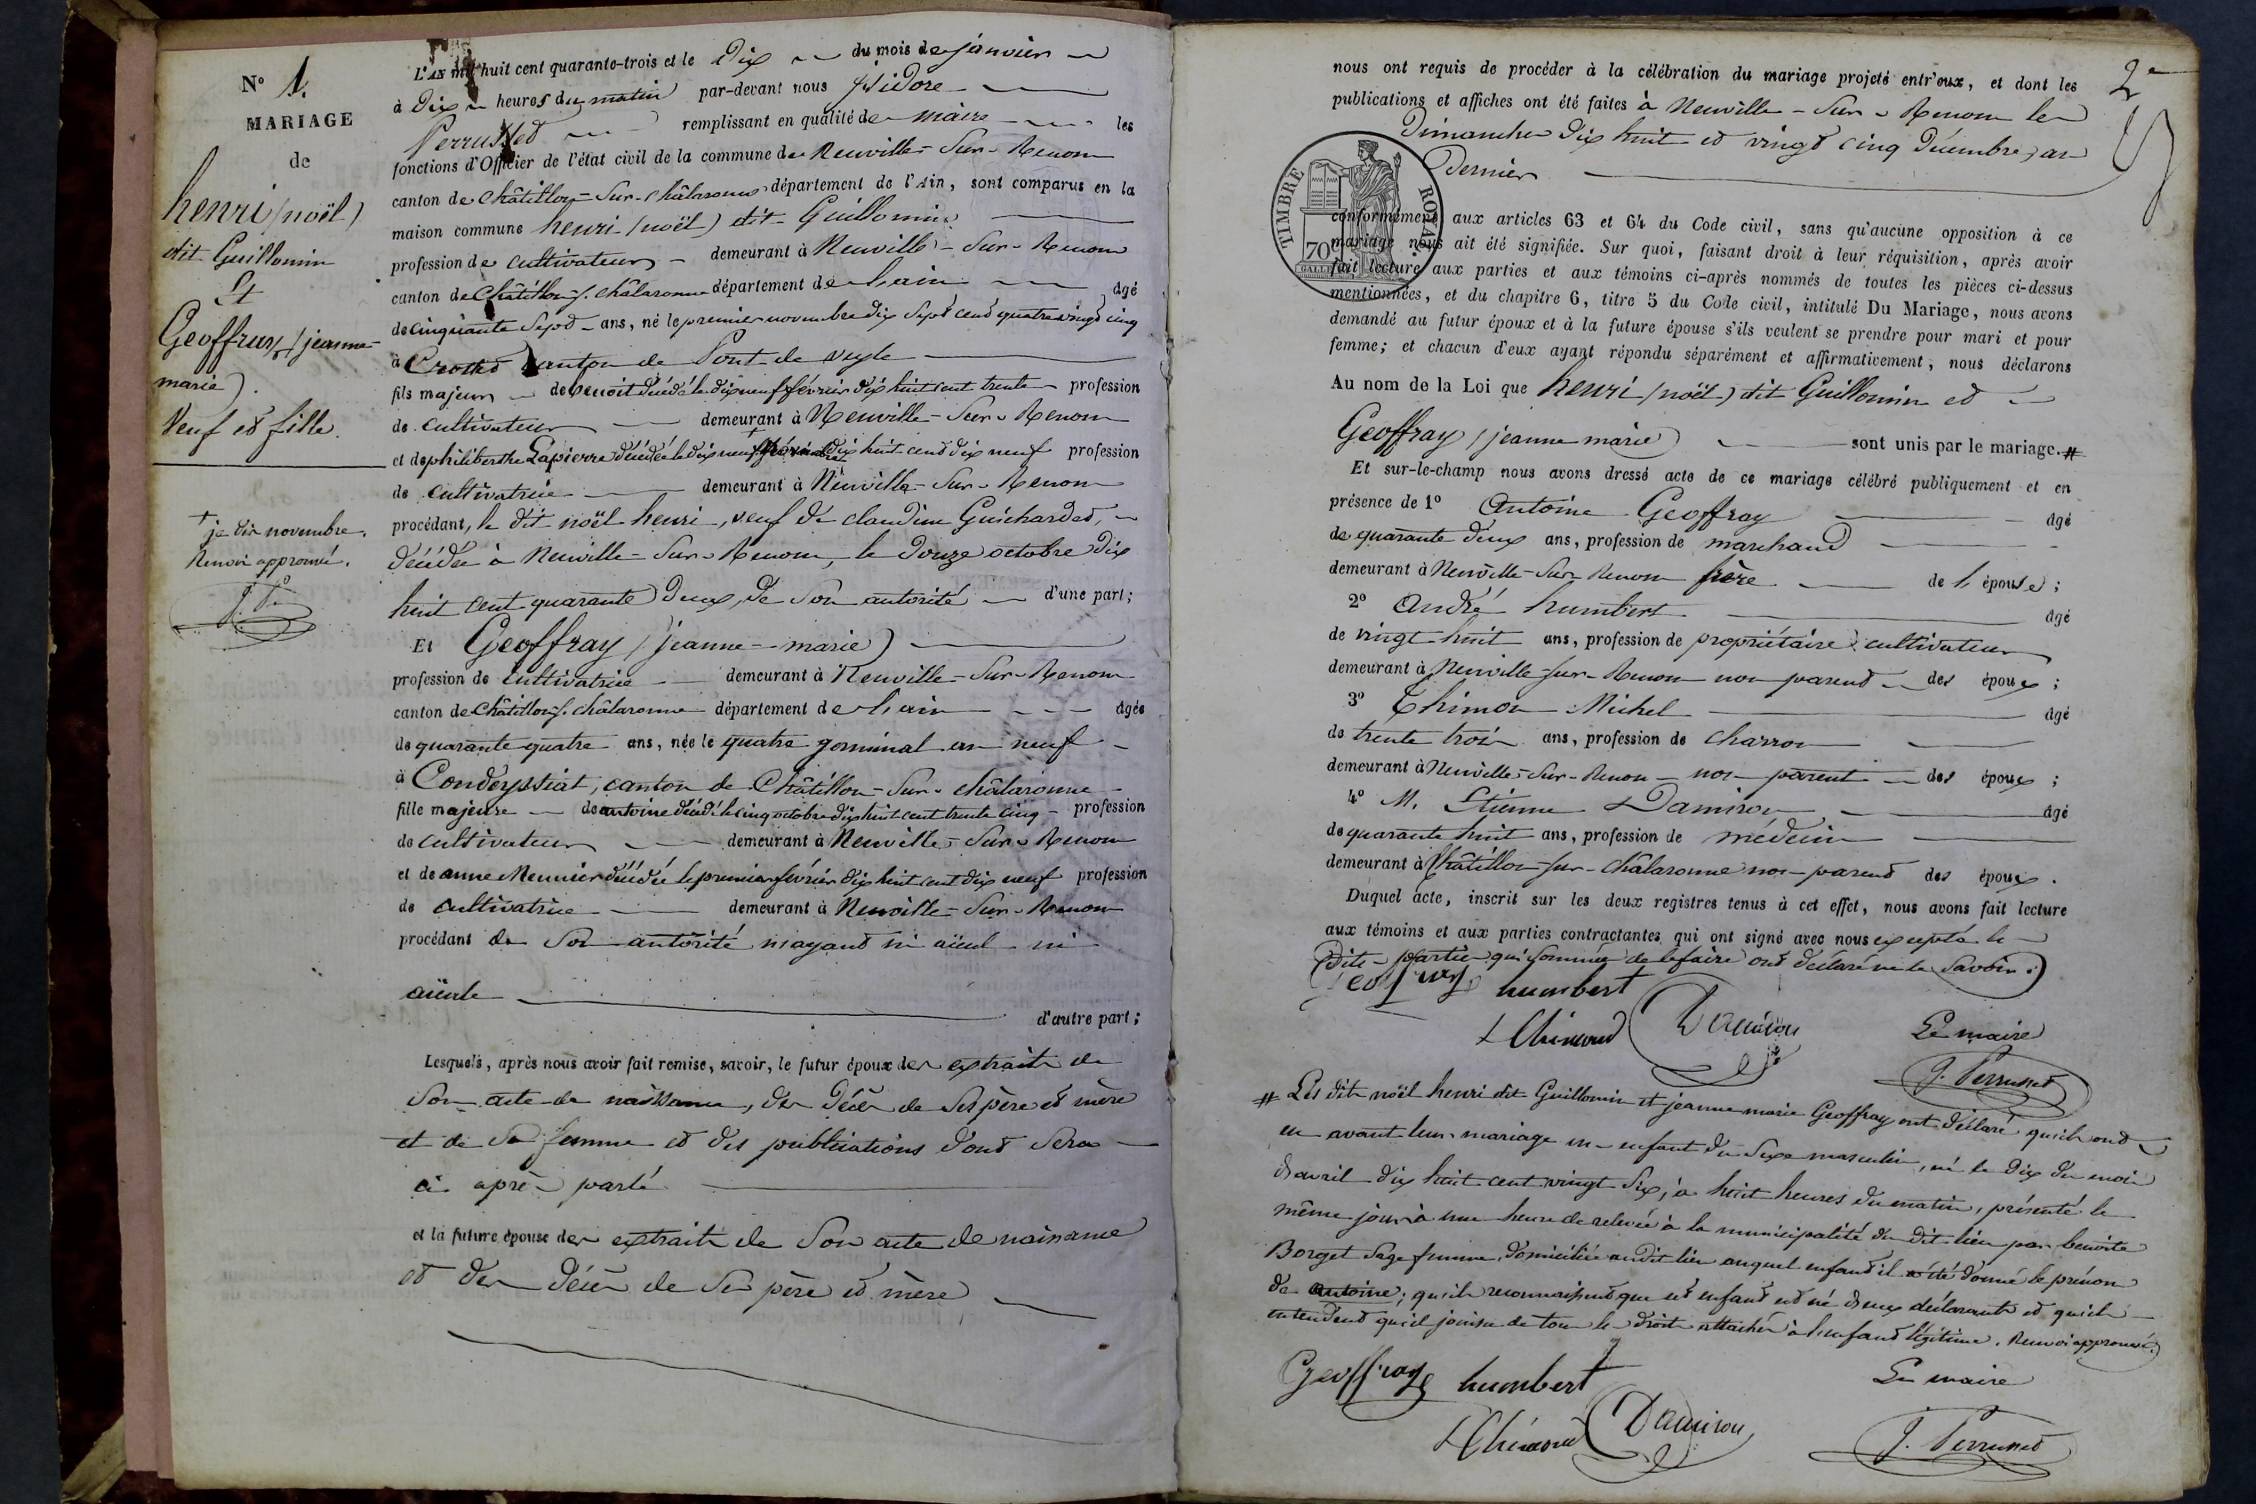 N° 1.
MARIAGE
de
henri (noël)
dit Guillomin
Et
Geoffray (jeanne-
marie).
Veuf et fille.
+ je dis novembre.
Renvoi approuvé.
L'AN mil huit cent quarante-trois et le Dix du mois de janvier
à Dix heures du matin par-devant nous Isidore
Perrusset remplissant en qualité de maire les
fonctions d'Officier de l'état civil de la commune de Neuville-Sur-Renom
canton de Châtillon-Sur-Châlaronne département de l'Ain, sont comparus en la
maison commune henri (noël) dit Guillomin
profession de cultivateur demeurant à Neuville-Sur-Renom
canton de Châtillon s. châlaronne département de l'ain âgé
de cinquante Sept ans, né le premier novembre dix Sept cent quatrevingt cinq
à Crottet Canton de Pont-de veyle
fils majeur de benoit décédé le dix neuf février dix huit cent trente profession
de cultivateur demeurant à Neuville-Sur-Renom
et de philiberthe Lapierre décédée le dix neuf + dix huit cent dix neuf profession
de cultivatrice demeurant à Neuville-Sur-Renom
procédant, le dit noël henri, veuf de claudine Guichardet,
décédée à Neuville-Sur-Renom, le Douze octobre dix
huit cent quarante Deux, de Son autorité d'une part;
Et Geoffray (jeanne-marie)
profession de cultivatrice demeurant à Neuville-Sur-Renom
canton de Châtillon s. châlaronne département de l'ain âgée
de quarante quatre ans, née le quatre germinal an neuf
à Condeyssiat, canton de Châtillon-Sur-châlaronne
fille majeure de antoine décédé le cinq octobre dix huit cent trente cinq profession
de cultivateur demeurant à Neuville-Sur-Renom
et de anne Meunier décédée le premier février dix huit cent dix neuf profession
de cultivatrice demeurant à Neuville-Sur-Renom
procédant de Son autorité n'ayant ni aïeul ni
aïeule
d'autre part;
Lesquels, après nous avoir fait remise, savoir, le futur époux des extraits de
Son acte de naissance, des Décès de Ses père et mère
et de Sa femme et des publications dont Sera
ci après parlé
et la future épouse des extraits de Son acte de naissance
et des Décès de Ses père et mère
2e
nous ont requis de procéder à la célébration du mariage projeté entr'eux, et dont les
publications et affiches ont été faites à Neuville-Sur-Renom les
Dimanches Dix huit et vingt cinq Décembre, an
Dernier
TIMBRE ROYAL
70
conformément aux articles 63 et 64 du Code civil, sans qu'aucune opposition à ce
mariage nous ait été signifiée. Sur quoi, faisant droit à leur réquisition, après avoir
fait lecture aux parties et aux témoins ci-après nommés de toutes les pièces ci-dessus
mentionnées, et du chapitre 6, titre 5 du Code civil, intitulé Du Mariage, nous avons
demandé au futur époux et à la future épouse s'ils veulent se prendre pour mari et pour
femme; et chacun d'eux ayant répondu séparément et affirmativement, nous déclarons
Au nom de la Loi que henri (noël) dit Guillomin et
Geoffray (jeanne marie) sont unis par le mariage. #
Et sur-le-champ nous avons dressé acte de ce mariage célébré publiquement et en
présence de 1° Antoine Geoffray âgé
de quarante deux ans, profession de marchand
demeurant à Neuville-Sur-Renom frère de l'épouse;
2° André humbert âgé
de vingt huit ans, profession de propriétaire cultivateur
demeurant à Neuville-sur-Renom non parent des époux;
3° Thimon Michel âgé
de trente trois ans, profession de charron
demeurant à Neuville-Sur-Renom non parent des époux;
4° M. Etienne Damiron âgé
de quarante huit ans, profession de médecin
demeurant à Châtillon-sur-châlaronne non parent des époux.
Duquel acte, inscrit sur les deux registres tenus à cet effet, nous avons fait lecture
aux témoins et aux parties contractantes qui ont signé avec nous excepté les
Dites parties qui Sommées de le faire ont déclaré ne le Savoir.
Geoffray humbert
Damiron Le maire
J. Perrusset
# Les dits noël henri dit Guillomin et jeanne marie Geoffray ont déclaré qu'ils ont
eu avant leur mariage un enfant du Sexe masculin, né le dix du mois
d'avril dix huit cent vingt Six, à huit heures du matin, présenté le
même jour à une heure de relevée à la municipalité du dit lieu par benoite
Borget Sage femme, domiciliée au dit lieu auquel enfant il a été donné le prénom
de Antoine; qu'ils reconnaissent que cet enfant est né d'eux déclarants et qu'ils
entendent qu'il jouisse de tous les droits attachés à l'enfant légitime. Renvoi approuvé.
Geoffray humbert
Le maire
Damiron
J. Perrusset